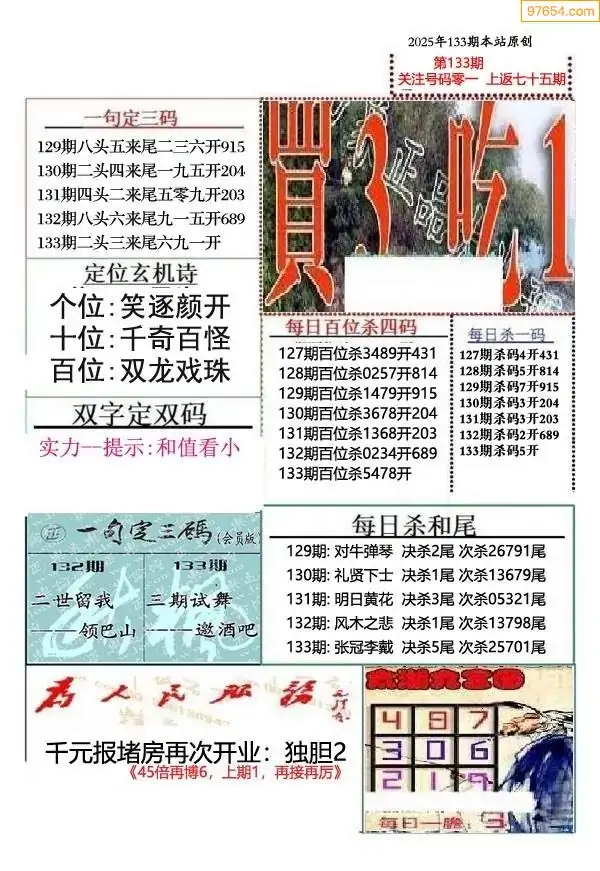 97654.com
2025年133期本站原创
第133期
关注号码零一 上返七十五期
一句定三码
129期八头五来尾二三六开915
130期二头四来尾一九五开204
131期四头二来尾五零九开203
132期八头六来尾九一五开689
133期二头三来尾六九一开
買3吃1
正品
定位玄机诗
个位:笑逐颜开
十位:千奇百怪
百位:双龙戏珠
每日百位杀四码
127期百位杀3489开431
128期百位杀0257开814
129期百位杀1479开915
130期百位杀3678开204
131期百位杀1368开203
132期百位杀0234开689
133期百位杀5478开
每日杀一码
127期杀码4开431
128期杀码5开814
129期杀码7开915
130期杀码3开204
131期杀码3开203
132期杀码2开689
133期杀码5开
双字定双码
实力--提示:和值看小
正 一句定三碼(会员版)
132期
133期
二世留我
三期试舞
——领巴山
——邀酒吧
每日杀和尾
129期: 对牛弹琴 决杀2尾 次杀26791尾
130期: 礼贤下士 决杀1尾 次杀13679尾
131期: 明日黄花 决杀3尾 次杀05321尾
132期: 风木之悲 决杀1尾 次杀13798尾
133期: 张冠李戴 决杀5尾 次杀25701尾
为人民服务
千元报堵房再次开业：独胆2
《45倍再博6，上期1，再接再厉》
4 9 7
3 0 6
2 1 9
每日一胆: 3